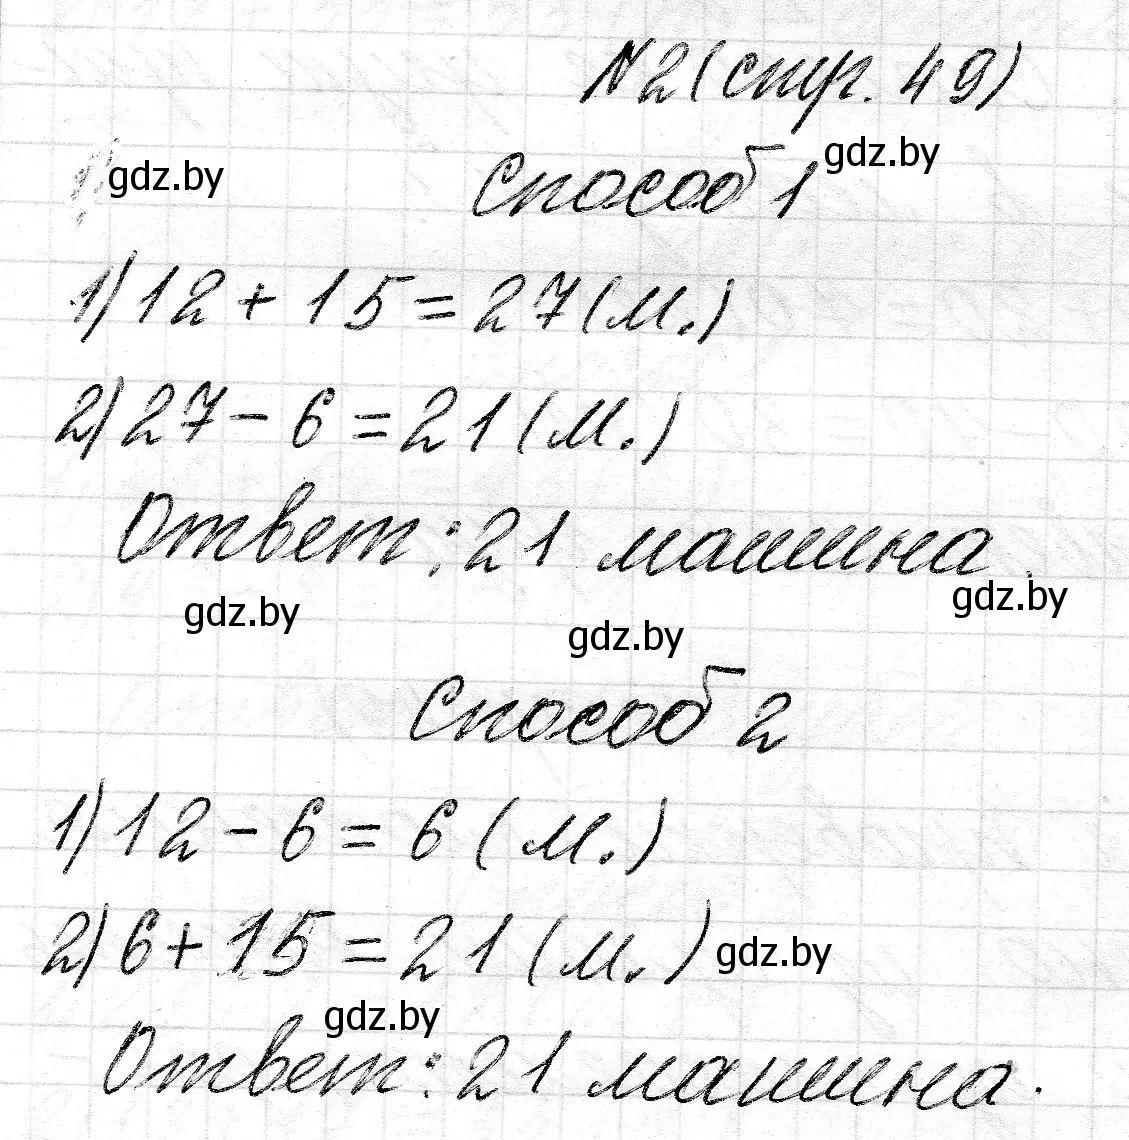 №2 (стр. 49)
gdz.by
Способ 1
gdz.by
1) 12 + 15 = 27 (м.)
2) 27 - 6 = 21 (м.)
Ответ: 21 машина.
gdz.by
gdz.by
gdz.by
Способ 2
1) 12 - 6 = 6 (м.)
2) 6 + 15 = 21 (м.)
gdz.by
gdz.by
Ответ: 21 машина.